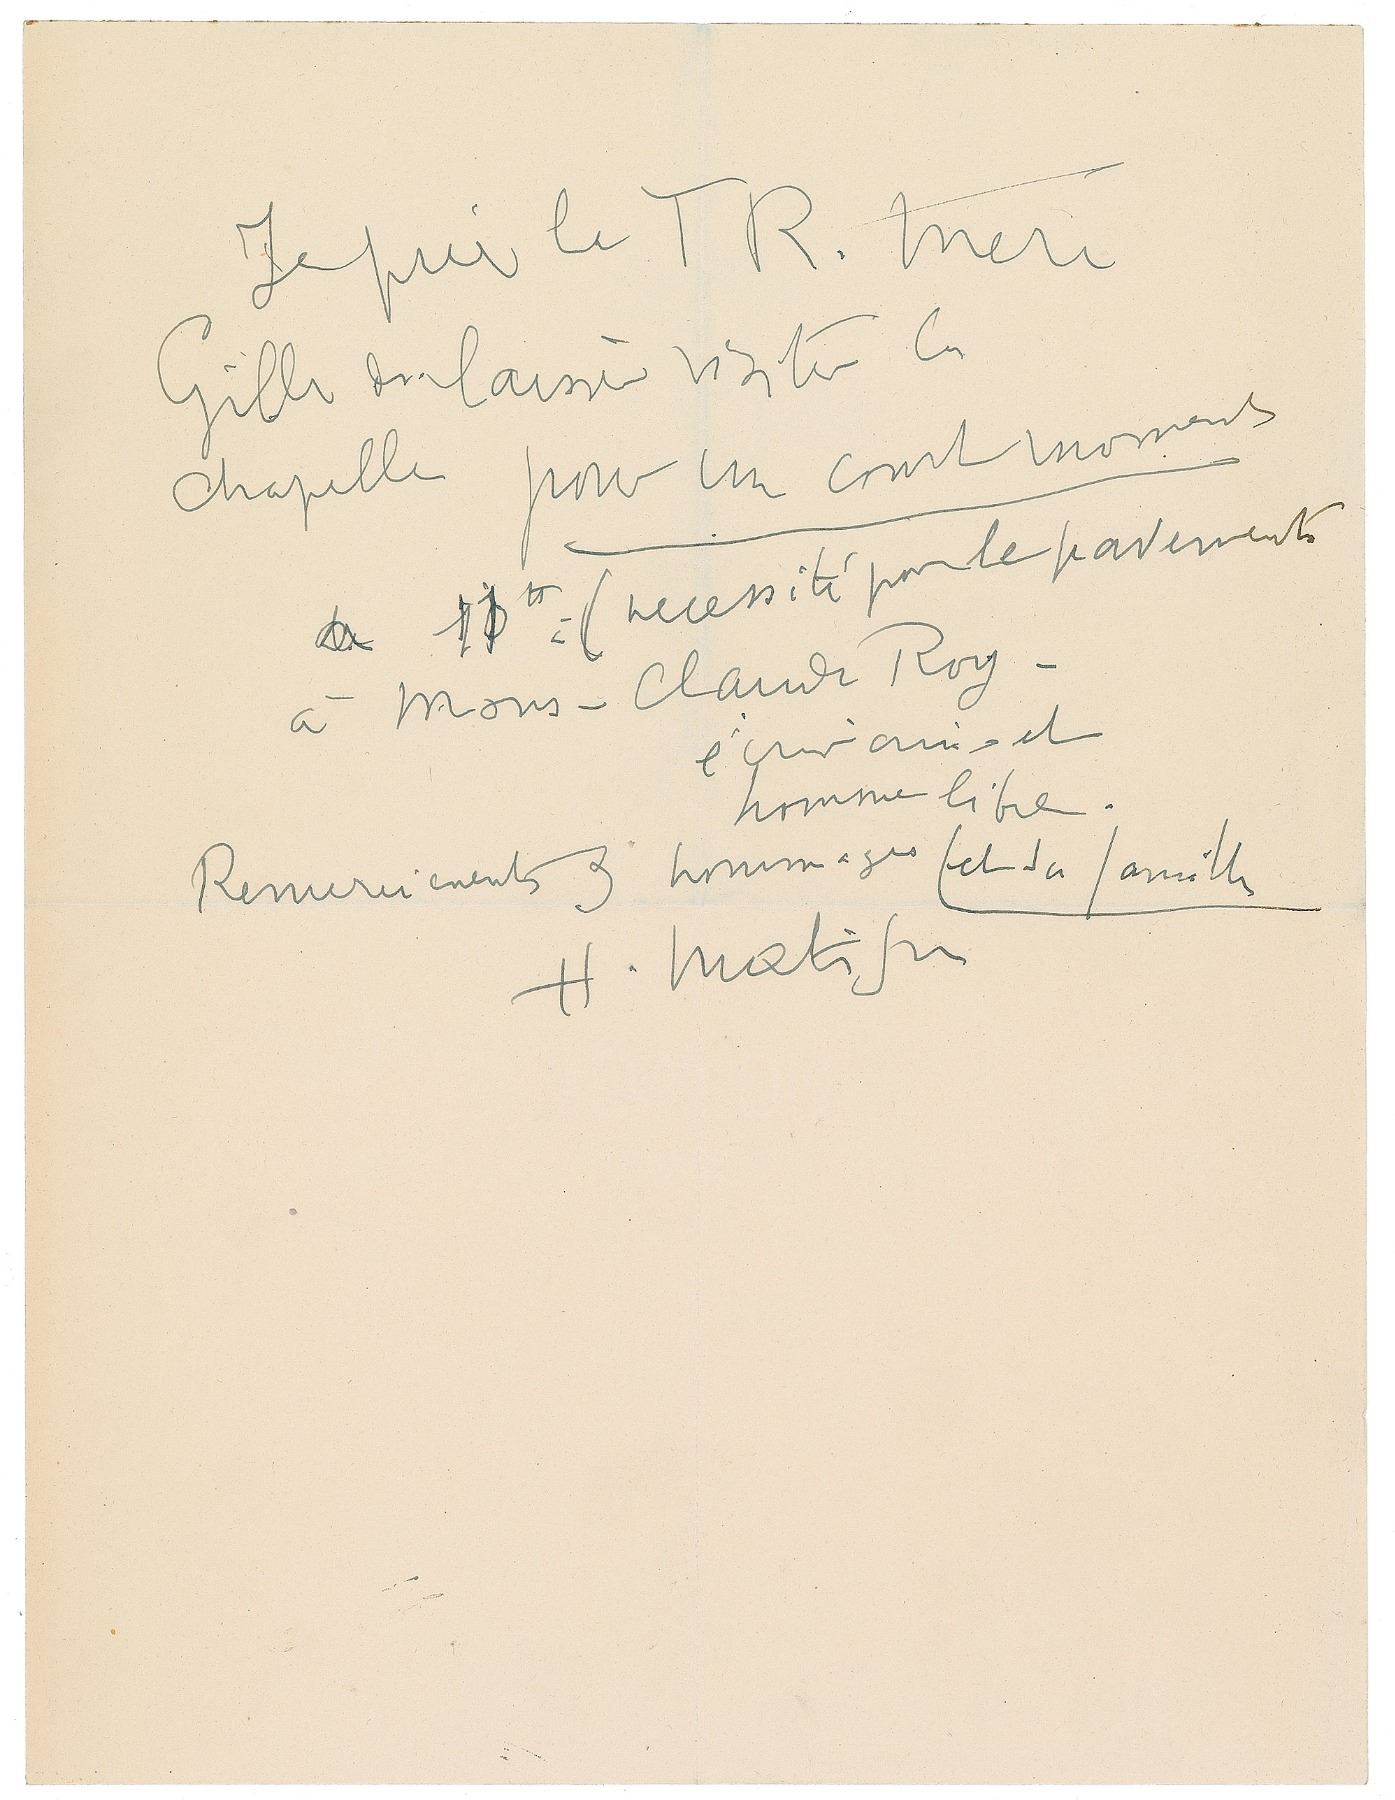 Je prie la T R. Mère
Gilles de laisser visiter la
chapelle pour un court moment
(necessité pour le pavement
à Mons - Claude Roy -
écrivain - et
homme libre.
Remerciements & hommages (et sa famille
H. Matisse